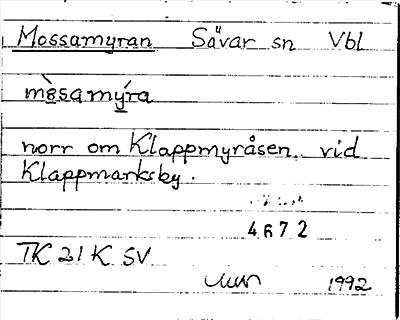 Mossamyran Sävar sn Vbl
norr om Klappmyråsen vid
Klappmarksby.
4672
TK 21 K SV
1992